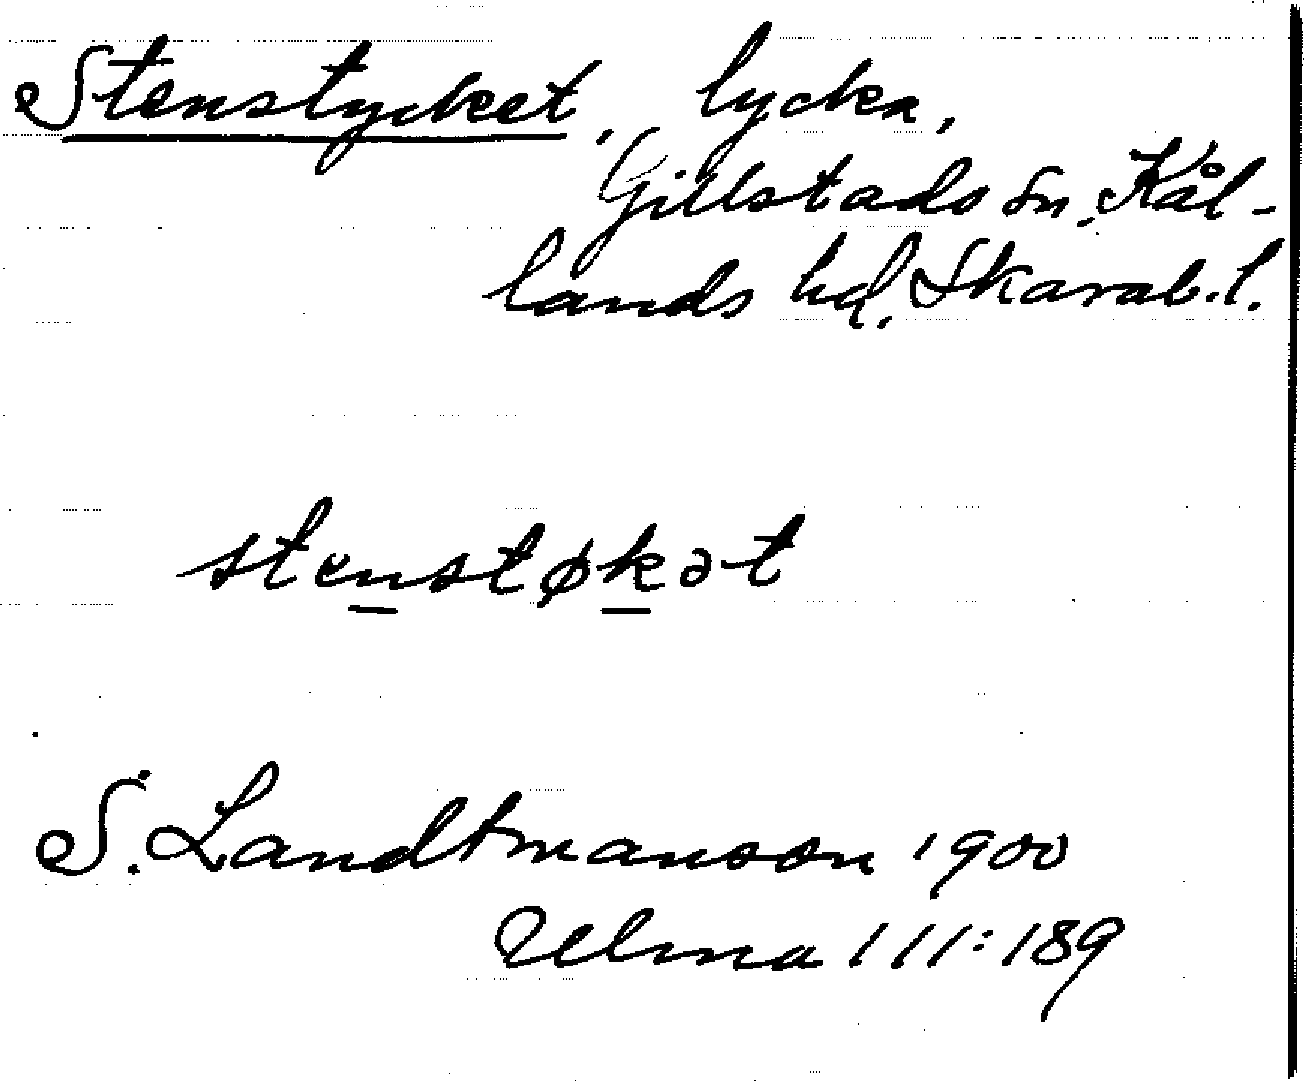 Stenstycket, lycka,
Gillstads sn, Kål-
lands hd, Skarab. l.
stenstøkət
S. Landtmanson 1900
Ulma 111:189